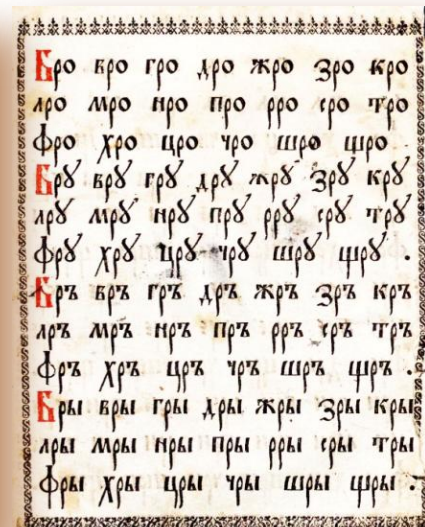 Бро вро гро дро жро ꙁро кро
лро мро нро про рро сро тро
фро хро цро чро шро щро
Брꙋ врꙋ грꙋ дрꙋ жрꙋ ꙁрꙋ крꙋ
лрꙋ мрꙋ нрꙋ прꙋ ррꙋ срꙋ трꙋ
фрꙋ хрꙋ црꙋ чрꙋ шрꙋ щрꙋ .
Бръ връ гръ дръ жръ ꙁръ кръ
лръ мръ нръ пръ рръ сръ тръ
фръ хръ цръ чръ шръ щръ .
Бры вры гры дры жры ꙁры кры
лры мры нры пры рры сры тры
фры хры цры чры шры щры .